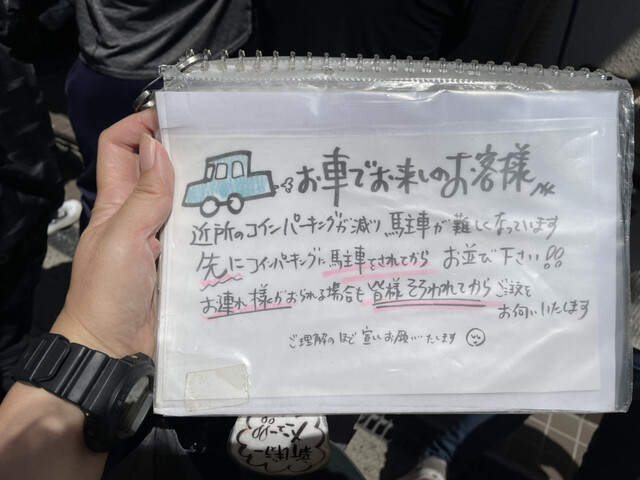 お車でお来しのお客様
近所のコインパーキングが減り、馬主車が難しくなっています
先にコインパーキングに馬主車をされてから お並び下さい!!
お連れ様がおられる場合も皆様そろわれてから ご注文を
お伺いいたします
ご理解のほど宜しくお願いいたします